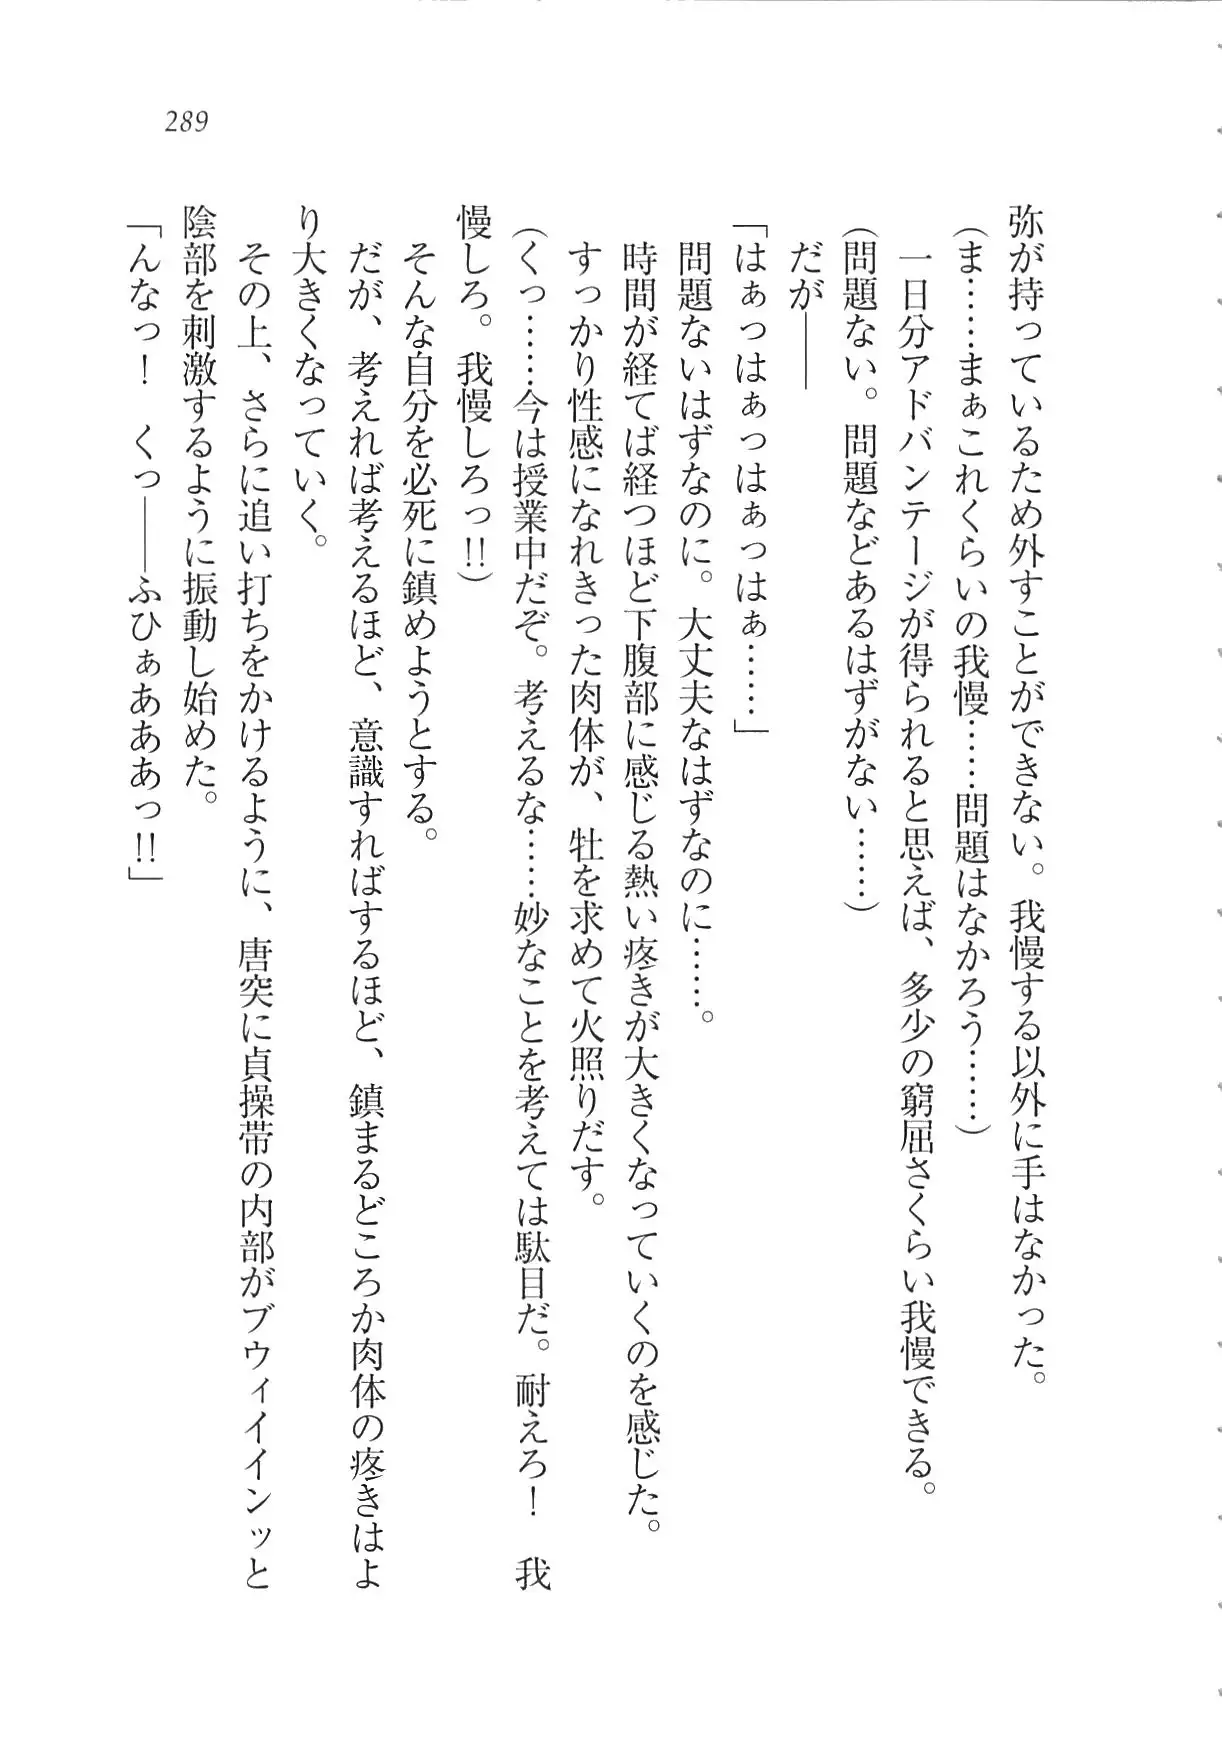 289
弥が持っているため外すことができない。我慢する以外に手はなかった。
（ま……まぁこれくらいの我慢……問題はなかろう……）
一日分アドバンテージが得られると思えば、多少の窮屈さくらい我慢できる。
（問題ない。問題などあるはずがない……）
だが――
「はぁっはぁっはぁっはぁ……」
問題ないはずなのに。大丈夫なはずなのに……。
時間が経てば経つほど下腹部に感じる熱い疼きが大きくなっていくのを感じた。
すっかり性感になれきった肉体が、牡を求めて火照りだす。
（くっ……今は授業中だぞ。考えるな……妙なことを考えては駄目だ。耐えろ！　我
慢しろ。我慢しろっ!!）
そんな自分を必死に鎮めようとする。
だが、考えれば考えるほど、意識すればするほど、鎮まるどころか肉体の疼きはよ
り大きくなっていく。
その上、さらに追い打ちをかけるように、唐突に貞操帯の内部がブゥィイインッと
陰部を刺激するように振動し始めた。
「んなっ！　くっ――ふひぁあああっ!!」